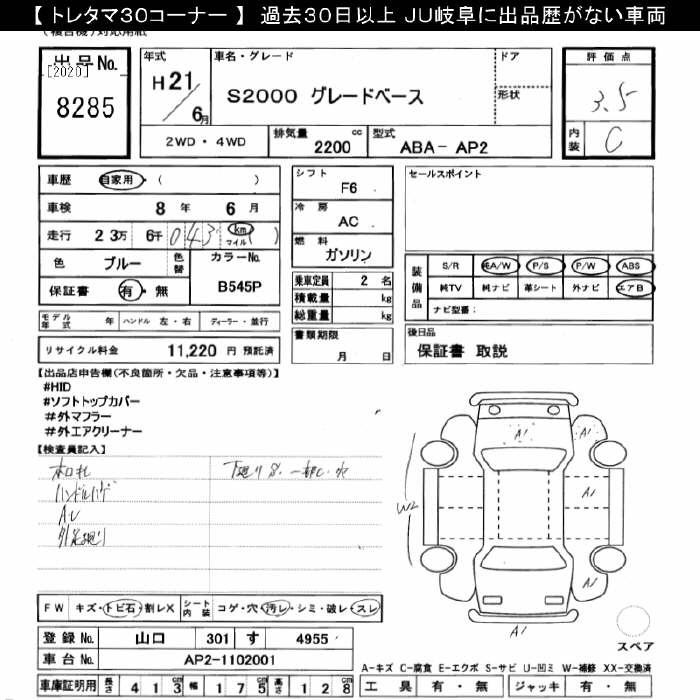 【 トレタマ30コーナー 】 過去30日以上 JU岐阜に出品歴がない車両
出品No. [2020] 8285
年式 H21/6月
車名・グレード S2000 グレードベース
ドア
形状
評価点 3.5
内装 C
2WD・4WD 排気量 2200 cc 型式 ABA- AP2
車歴 自家用 ( )
車検 8 年 6 月
走行 2 3万 6千 0 4 3 km マイル ( )
色 ブルー 色替 カラーNo. B545P
保証書 有・無
シフト F6
冷房 AC
燃料 ガソリン
乗車定員 2 名
積載量 kg
総重量 kg
セールスポイント
装備品 S/R 純A/W P/S P/W ABS
純TV 純ナビ 革シート 外ナビ エアB
ナビ型番:
モデル年式 年 ハンドル 左・右 ディーラー・並行
リサイクル料金 11,220 円 預託済
書類期限 月 日
後日品
保証書 取説
【出品店申告欄(不良箇所・欠品・注意事項等)】
#HID
#ソフトトップカバー
#外マフラー
#外エアクリーナー
【検査員記入】
A1
A1
W2
A1
A1
A1
FW キズ・トビ石・割レX シート内装 コゲ・穴・汚レ・シミ・破レ・スレ
登録No. 山口 301 す 4955
車台No. AP2-1102001
スペア
A-キズ C-腐食 E-エクボ S-サビ U-凹ミ W-補修 XX-交換済
車庫証明用 長さ 4 1 3 cm 幅 1 7 5 cm 高さ 1 2 8 cm
工具 有・無 ジャッキ 有・無